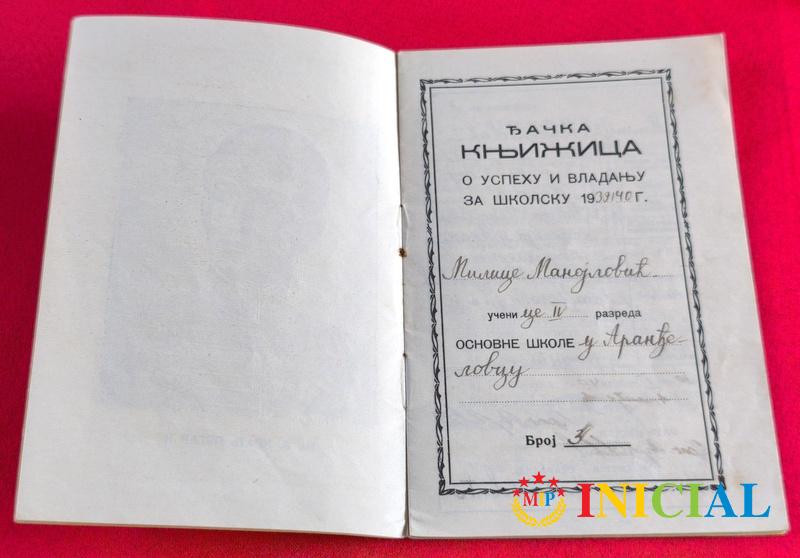 ЂАЧКА
КЊИЖИЦА
О УСПЕХУ И ВЛАДАЊУ
ЗА ШКОЛСКУ 1939/40 Г.
Милице Манојловић
учени це IV разреда
ОСНОВНЕ ШКОЛЕ у Аранђе-
ловцу
Број 3
MIP INICIAL